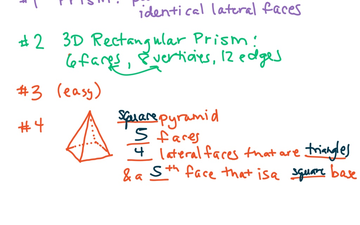 #1 Prism:
identical lateral faces
#2 3D Rectangular Prism:
6 faces, 8 verticies, 12 edges
#3 (easy)
#4 square pyramid
5 faces
4 lateral faces that are triangles
& a 5th face that is a square base